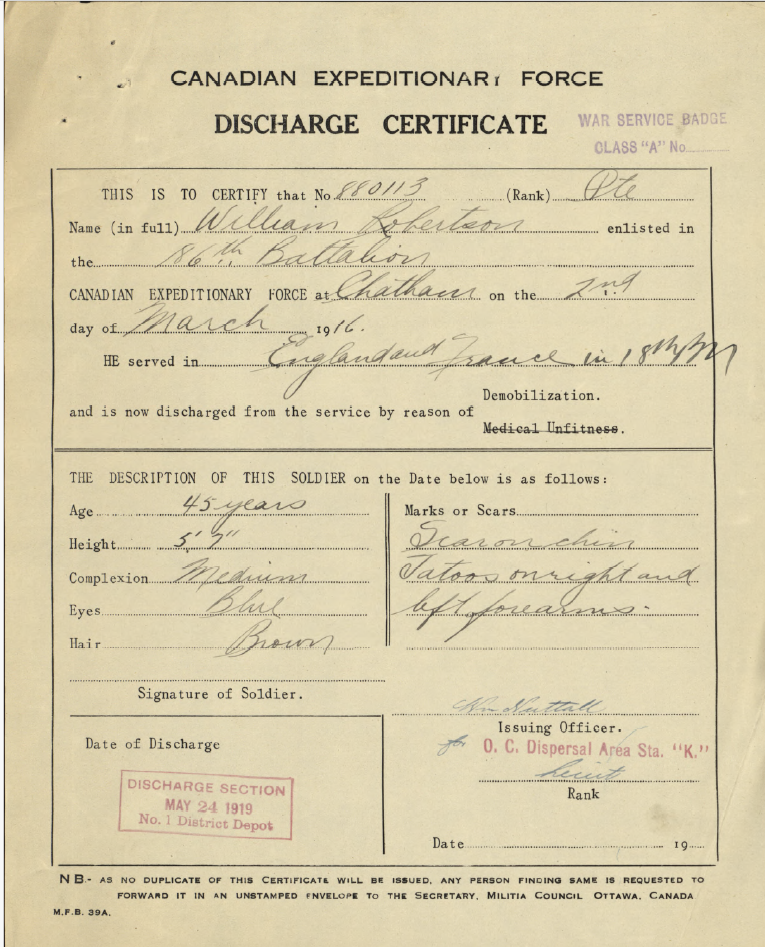 CANADIAN EXPEDITIONARY FORCE
DISCHARGE CERTIFICATE
WAR SERVICE BADGE
CLASS "A" No
THIS IS TO CERTIFY that No 880113 (Rank) Pte
Name (in full) William Robertson enlisted in
the 186th Battalion
CANADIAN EXPEDITIONARY FORCE at Chatham on the 2nd
day of March 1916.
HE served in England and France in 18th Bn
Demobilization.
and is now discharged from the service by reason of
Medical Unfitness.
THE DESCRIPTION OF THIS SOLDIER on the Date below is as follows:
Age 45 years
Height 5' 7"
Complexion Medium
Eyes Blue
Hair Brown
Marks or Scars
Scar on chin
Tatoos on right and
left forearms.
Signature of Soldier.
Wm Nuttall
Issuing Officer.
for O. C. Dispersal Area Sta. "K."
Lieut
Rank
Date of Discharge
DISCHARGE SECTION
MAY 24 1919
No. 1 District Depot
Date 19
NB.- AS NO DUPLICATE OF THIS CERTIFICATE WILL BE ISSUED, ANY PERSON FINDING SAME IS REQUESTED TO
FORWARD IT IN AN UNSTAMPED ENVELOPE TO THE SECRETARY, MILITIA COUNCIL OTTAWA, CANADA
M.F.B. 39A.